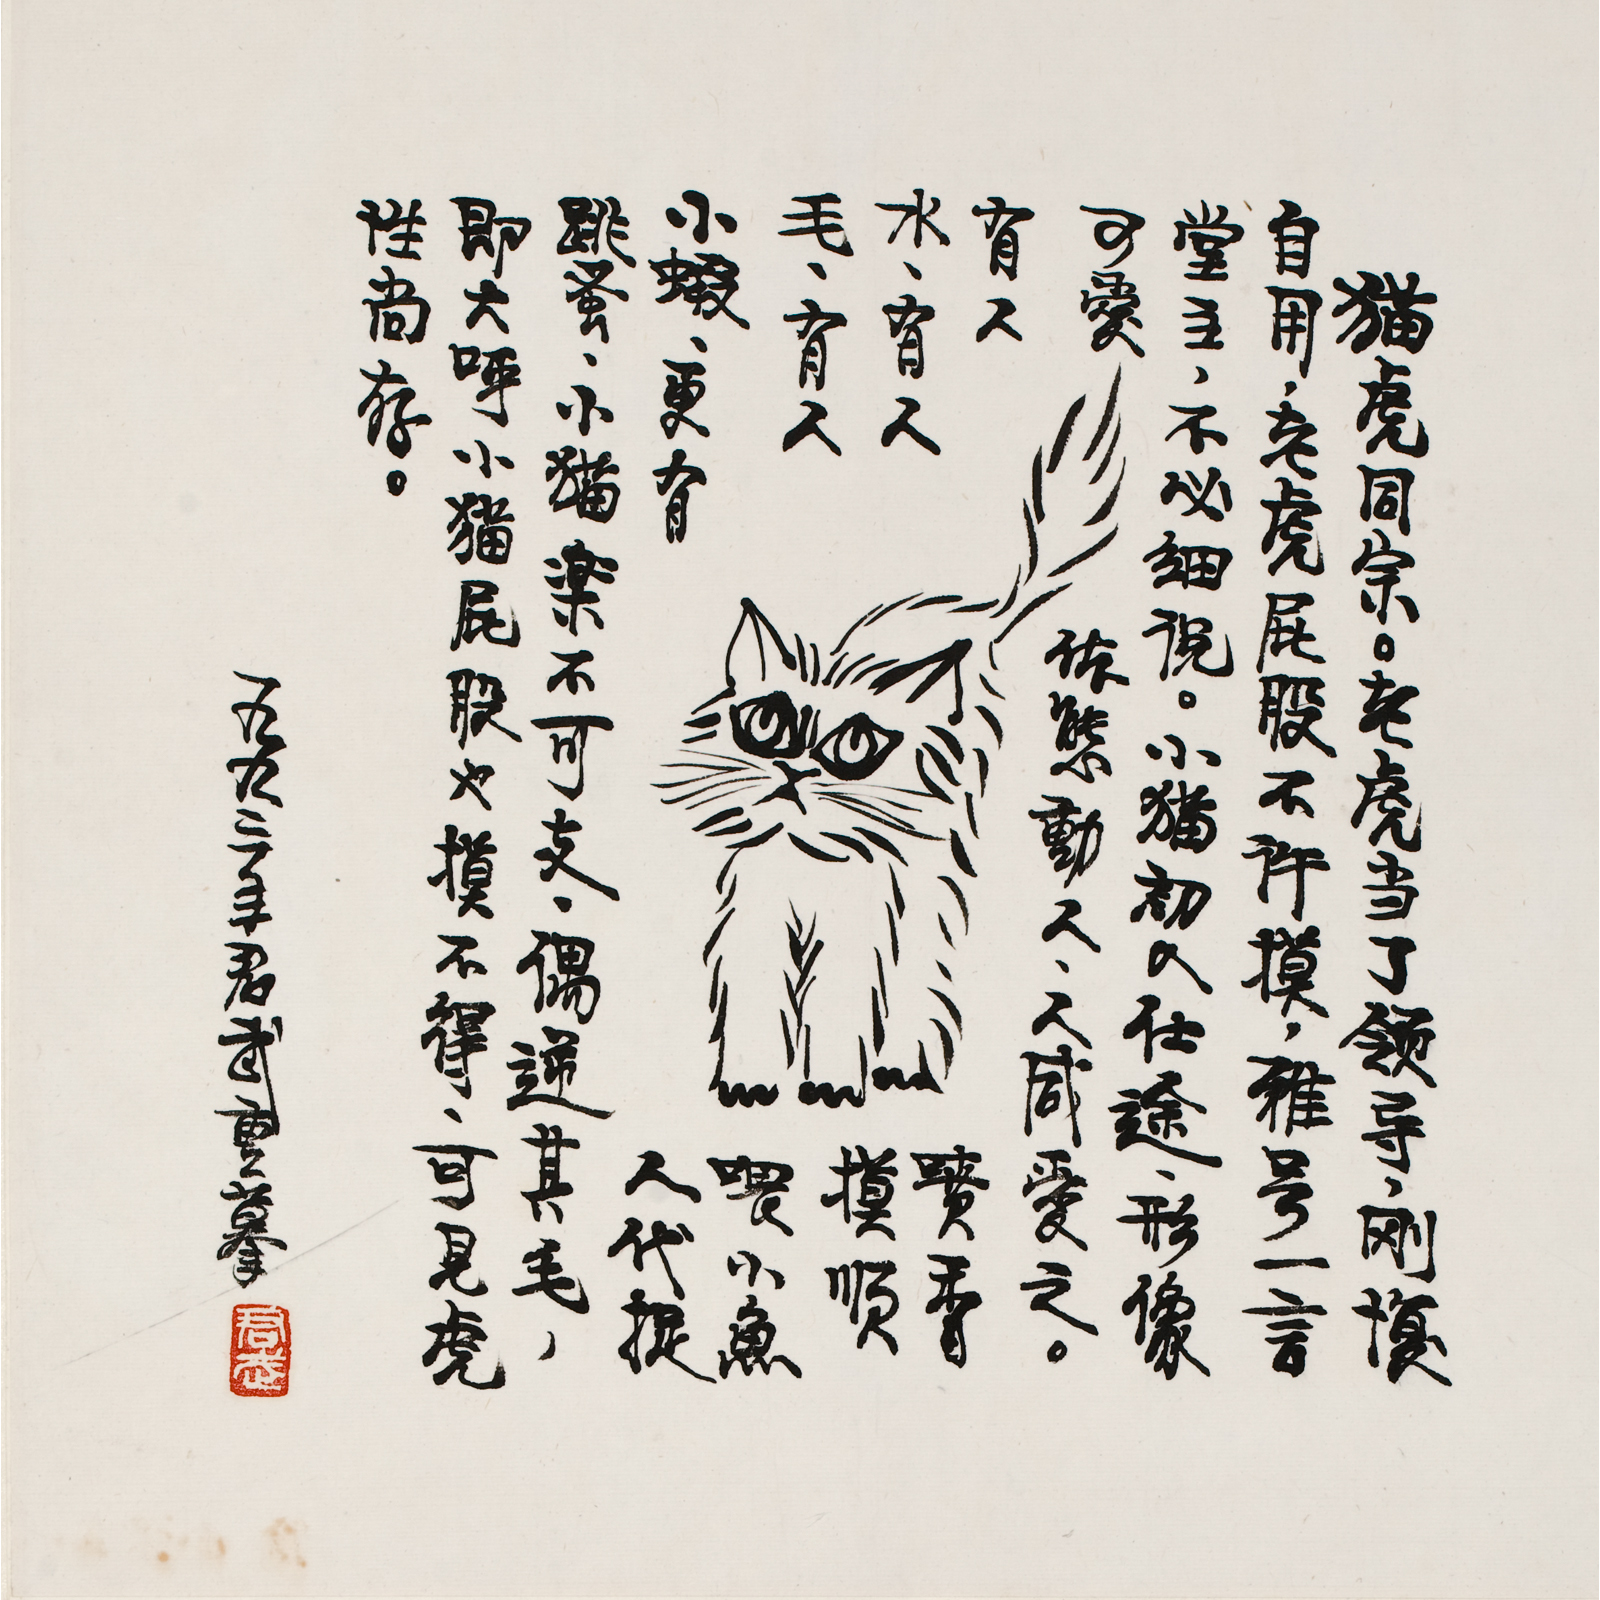 猫虎同宗。老虎当了领导，刚愎
自用，老虎屁股不许摸，雅号一言
堂主，不必细说。小猫初入仕途、形像
可愛体態動人、人咸愛之。
有人噴香
水、有人摸顺
毛、有人喂小魚
小蝦、更有人代捉
跳蚤、小猫楽不可支、偶逆其毛，
即大呼小猫屁股也摸不得、可見虎
性尚存。
一九九二年君武重摹
君武